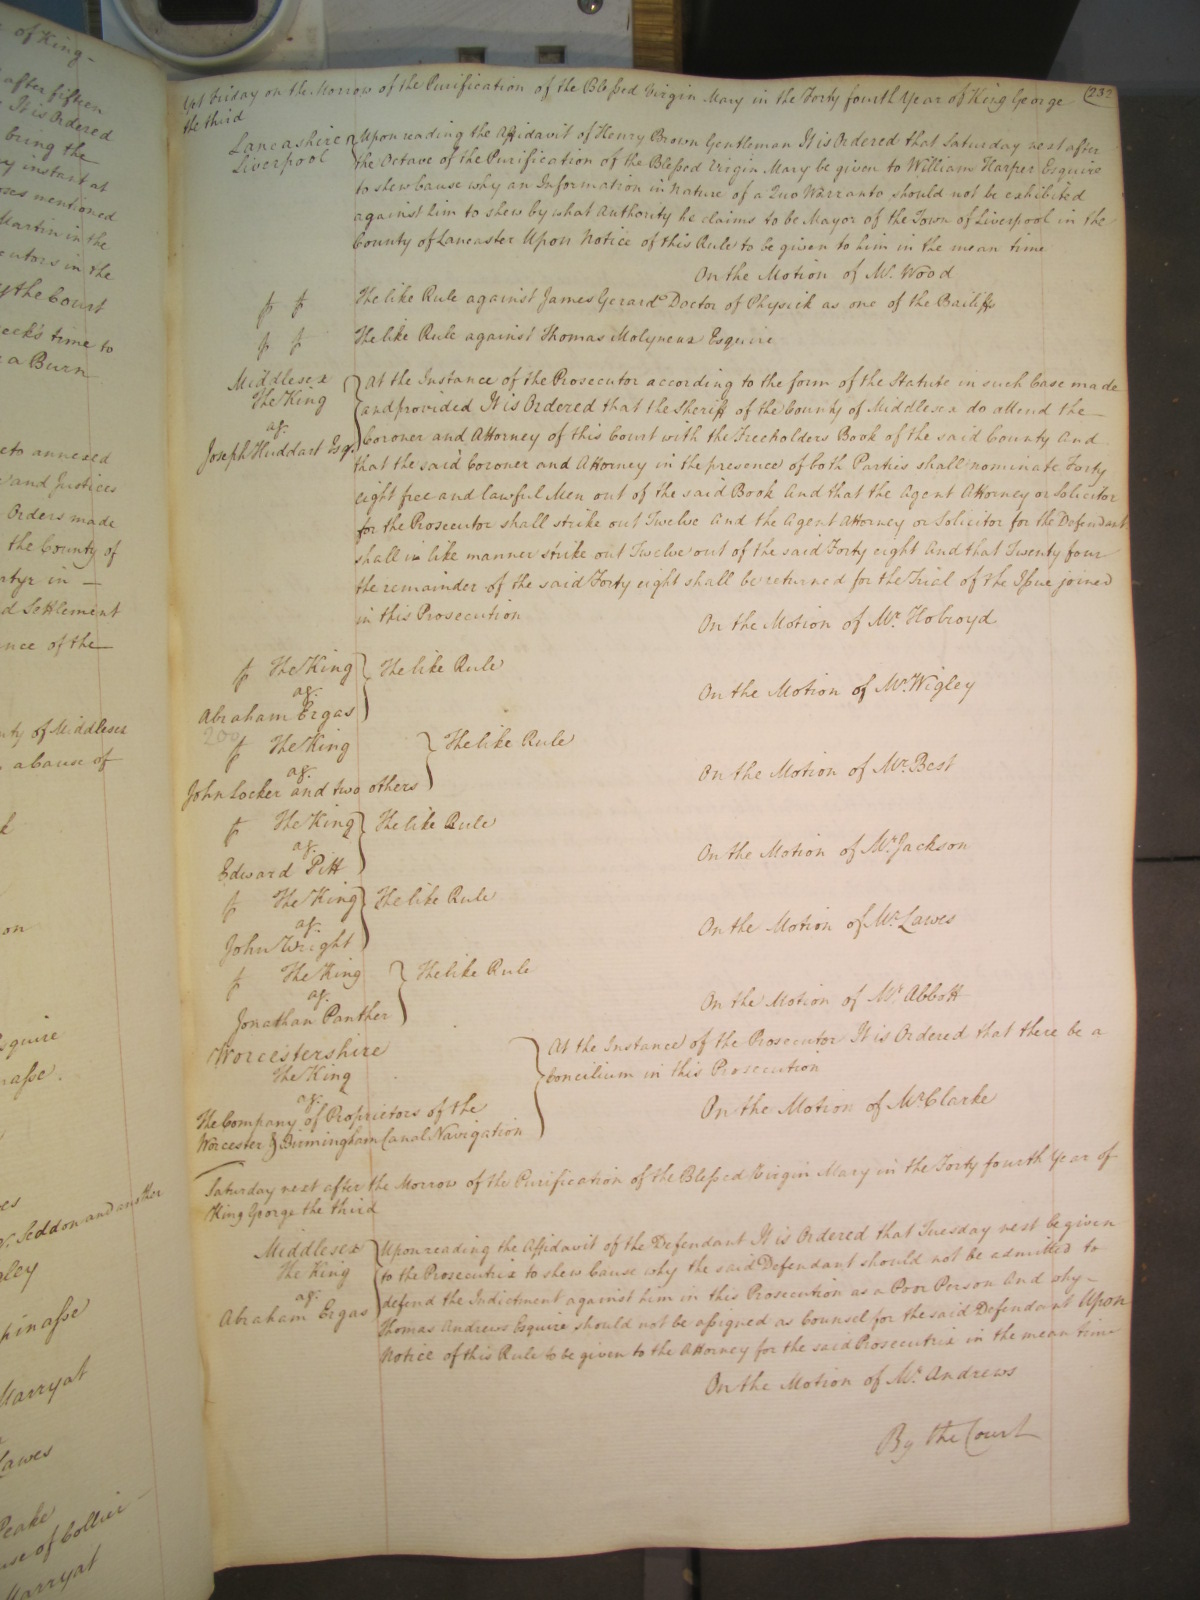 of King
after fifteen
It is Ordered
bring the
instant at
mentioned
Martin in the
in the
the Court
time to
a Burn
annexed
and Justices
Orders made
the County of
in —
Settlement
of the —
of Middlesex
a Cause of
on
Seddon and another
Marryat
Lawes
Peake
of Collier
Marryat
Yet Friday on the Morrow of the Purification of the Blessed Virgin Mary in the Forty fourth Year of King George
the third
232
Lancashire
Liverpool
Upon reading the Affidavit of Henry Brown Gentleman It is Ordered that Saturday next after
the Octave of the Purification of the Blessed Virgin Mary be given to William Harper Esquire
to shew Cause why an Information in Nature of a Quo Warranto should not be exhibited
against him to shew by what Authority he claims to be Mayor of the Town of Liverpool in the
County of Lancaster Upon Notice of this Rule to be given to him in the mean time
On the Motion of Mr. Wood
The like Rule against James Gerard Doctor of Physick as one of the Bailiffs
The like Rule against Thomas Molyneux Esquire
Middlesex
The King
ag.
Joseph Huddart Esq.
At the Instance of the Prosecutor according to the form of the Statute in such Case made
and provided It is Ordered that the Sheriff of the County of Middlesex do attend the —
Coroner and Attorney of this Court with the Freeholders Book of the said County And
that the said Coroner and Attorney in the presence of both Parties shall nominate Forty
eight free and lawful Men out of the said Book And that the Agent Attorney or Solicitor
for the Prosecutor shall strike out Twelve And the Agent Attorney or Solicitor for the Defendant
shall in like manner strike out Twelve out of the said Forty eight And that Twenty four
the remainder of the said Forty eight shall be returned for the Trial of the Issue joined
in this Prosecution
On the Motion of Mr. Holroyd
The King
ag.
Abraham Ergas
The like Rule
On the Motion of Mr. Wigley
200
The King
ag.
John Locker and two others
The like Rule
On the Motion of Mr. Best
The King
ag.
Edward Pitt
The like Rule
On the Motion of Mr. Jackson
The King
ag.
John Wright
The like Rule
On the Motion of Mr. Lawes
The King
ag.
Jonathan Panther
The like Rule
On the Motion of Mr. Abbott
Worcestershire
The King
ag.
The Company of Proprietors of the
Worcester & Birmingham Canal Navigation
At the Instance of the Prosecutor It is Ordered that there be a
Concilium in this Prosecution
On the Motion of Mr. Clarke
Saturday next after the Morrow of the Purification of the Blessed Virgin Mary in the Forty fourth Year of
King George the third
Middlesex
The King
ag.
Abraham Ergas
Upon reading the Affidavit of the Defendant It is Ordered that Tuesday next be given
to the Prosecutrix to shew Cause why the said Defendant should not be admitted to
defend the Indictment against him in this Prosecution as a Poor Person And why —
Thomas Andrews Esquire should not be assigned as Counsel for the said Defendant Upon
Notice of this Rule to be given to the Attorney for the said Prosecutrix in the mean time
On the Motion of Mr. Andrews
By the Court